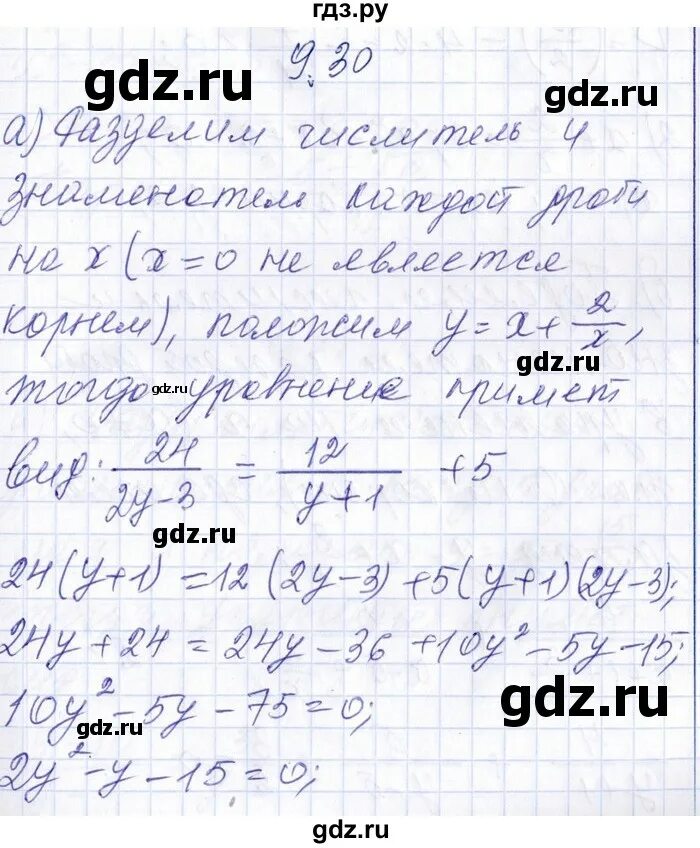 гдз.ру
9.30
gdz.ru gdz.ru
а) Разделим числитель и
знаменатель каждой дроби
на x (x = 0 не является
корнем), положим y = x + 2/x,
gdz.ru
тогда уравнение примет
gdz.ru
вид: 24/(2y-3) = 12/(y+1) + 5
gdz.ru
24(y+1) = 12(2y-3) + 5(y+1)(2y-3);
24y + 24 = 24y - 36 + 10y² - 5y - 15;
10y² - 5y - 75 = 0;
gdz.ru gdz.ru
2y² - y - 15 = 0;
gdz.ru